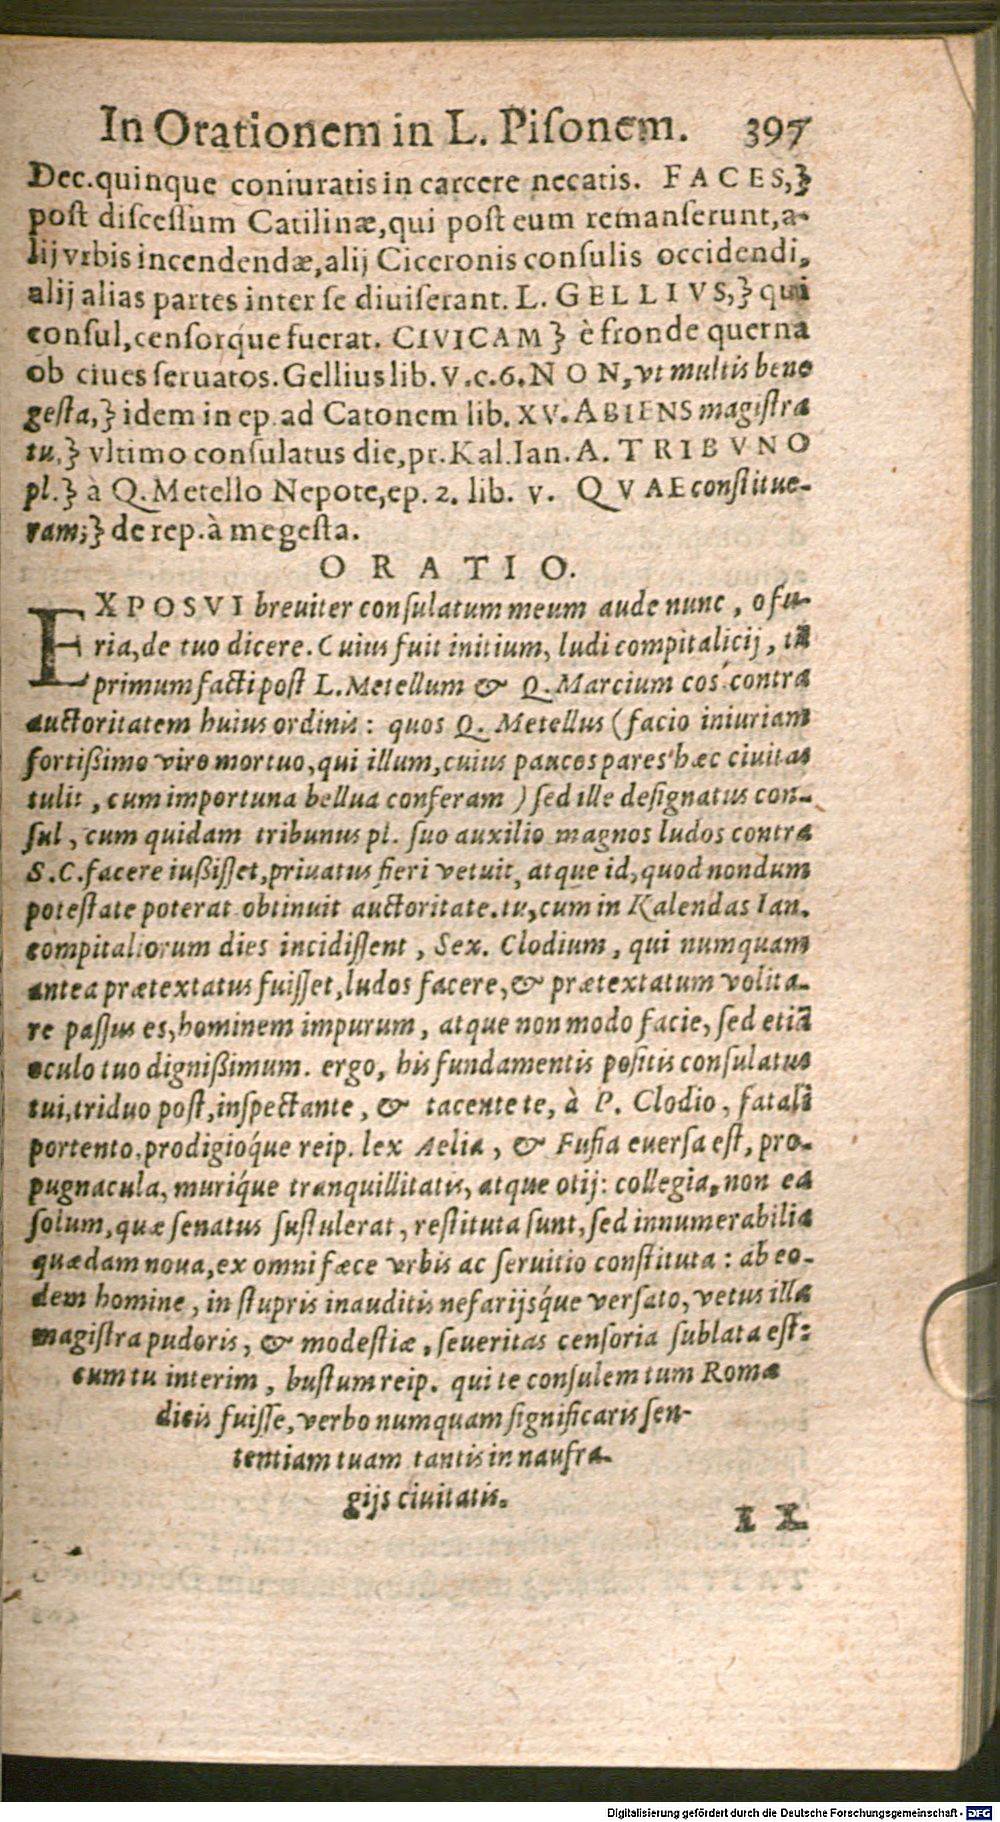 In Orationem in L. Piſonem. 397
Dec. quinque coniuratis in carcere necatis. FACES,}
poſt diſceſſum Catilinæ, qui poſt eum remanſerunt, a-
lij vrbis incendendæ, alij Ciceronis conſulis occidendi,
alij alias partes inter ſe diuiſerant. L. GELLIVS,} qui
conſul, cenſorq́ue fuerat. CIVICAM} è fronde querna
ob ciues ſeruatos. Gellius lib. V. c. 6. NON, vt multis bene
geſta,} idem in ep. ad Catonem lib. XV. ABIENS magiſtra
tu,} vltimo conſulatus die, pr. Kal. Ian. A. TRIBVNO
pl.} à Q. Metello Nepote, ep. 2. lib. v. QVAE conſtitue-
ram;} de rep. à me geſta.
ORATIO.
EXPOSVI breuiter conſulatum meum aude nunc, o fu-
ria, de tuo dicere. Cuius fuit initium, ludi compitalicij, tū
primum facti poſt L. Metellum & Q. Marcium cos. contra
auctoritatem huius ordinis: quos Q. Metellus (facio iniuriam
fortißimo viro mortuo, qui illum, cuius paucos pares hæc ciuitas
tulit, cum importuna bellua conferam) ſed ille deſignatus con-
ſul, cum quidam tribunus pl. ſuo auxilio magnos ludos contra
S.C. facere iußiſſet, priuatus fieri vetuit, atque id, quod nondum
poteſtate poterat obtinuit auctoritate. tu, cum in Kalendas Ian.
compitaliorum dies incidiſſent, Sex. Clodium, qui numquam
antea prætextatus fuiſſet, ludos facere, & prætextatum volita-
re paſſus es, hominem impurum, atque non modo facie, ſed etiā
oculo tuo dignißimum. ergo, his fundamentis poſitis conſulatus
tui, triduo poſt, inſpectante, & tacente te, à P. Clodio, fatali
portento, prodigioq́ue reip. lex Aelia, & Fuſia euerſa eſt, pro-
pugnacula, muriq́ue tranquillitatis, atque otij: collegia, non ea
ſolum, quæ ſenatus ſuſtulerat, reſtituta ſunt, ſed innumerabilia
quædam noua, ex omni fæce vrbis ac ſeruitio conſtituta: ab eo-
dem homine, in ſtupris inauditis nefarijsq́ue verſato, vetus illa
magiſtra pudoris, & modeſtiæ, ſeueritas cenſoria ſublata eſt:
cum tu interim, buſtum reip. qui te conſulem tum Romæ
dicis fuiſſe, verbo numquam ſignificaris ſen-
tentiam tuam tantis in naufra-
gijs ciuitatis.
Digitalisierung gefördert durch die Deutsche Forschungsgemeinschaft - DFG